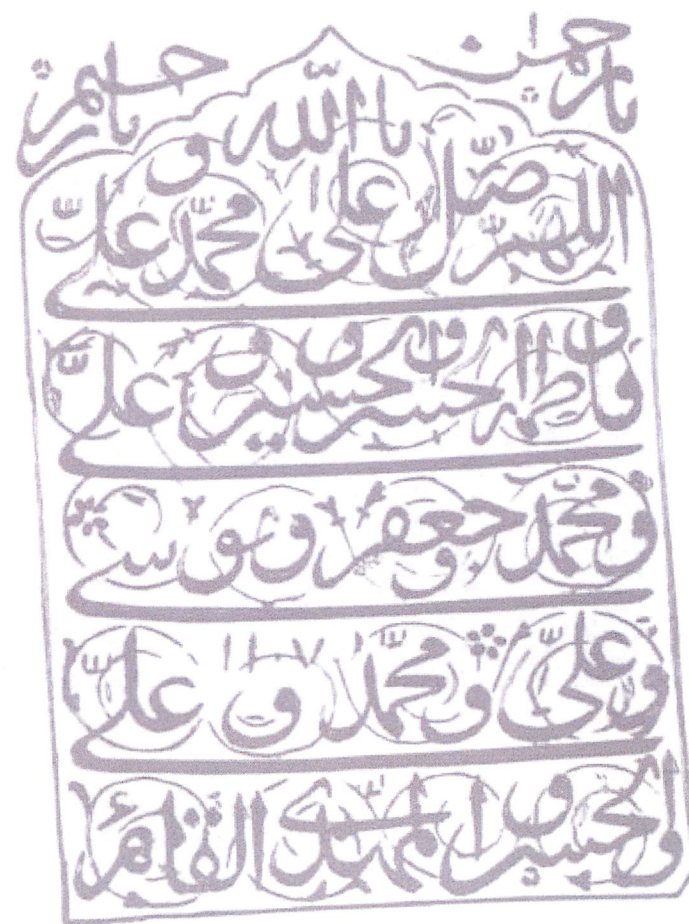 يا رحمن يا رحيم
يا الله
اللهم صل على محمد و على
و فاطمة و الحسن و الحسين و على
و محمد و جعفر و موسى
و على و محمد و على
و الحسن و المهدى القائم